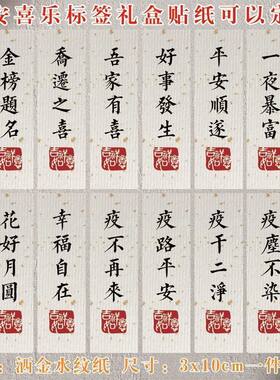 安喜乐标签礼盒贴纸可以定
金榜題名
喬遷之喜
吾家有喜
好事發生
平安順遂
一夜暴富
花好月圓
幸福自在
疫不再來
疫路平安
疫干二淨
疫塵不染
：洒金水纹纸 尺寸：3x10cm一件